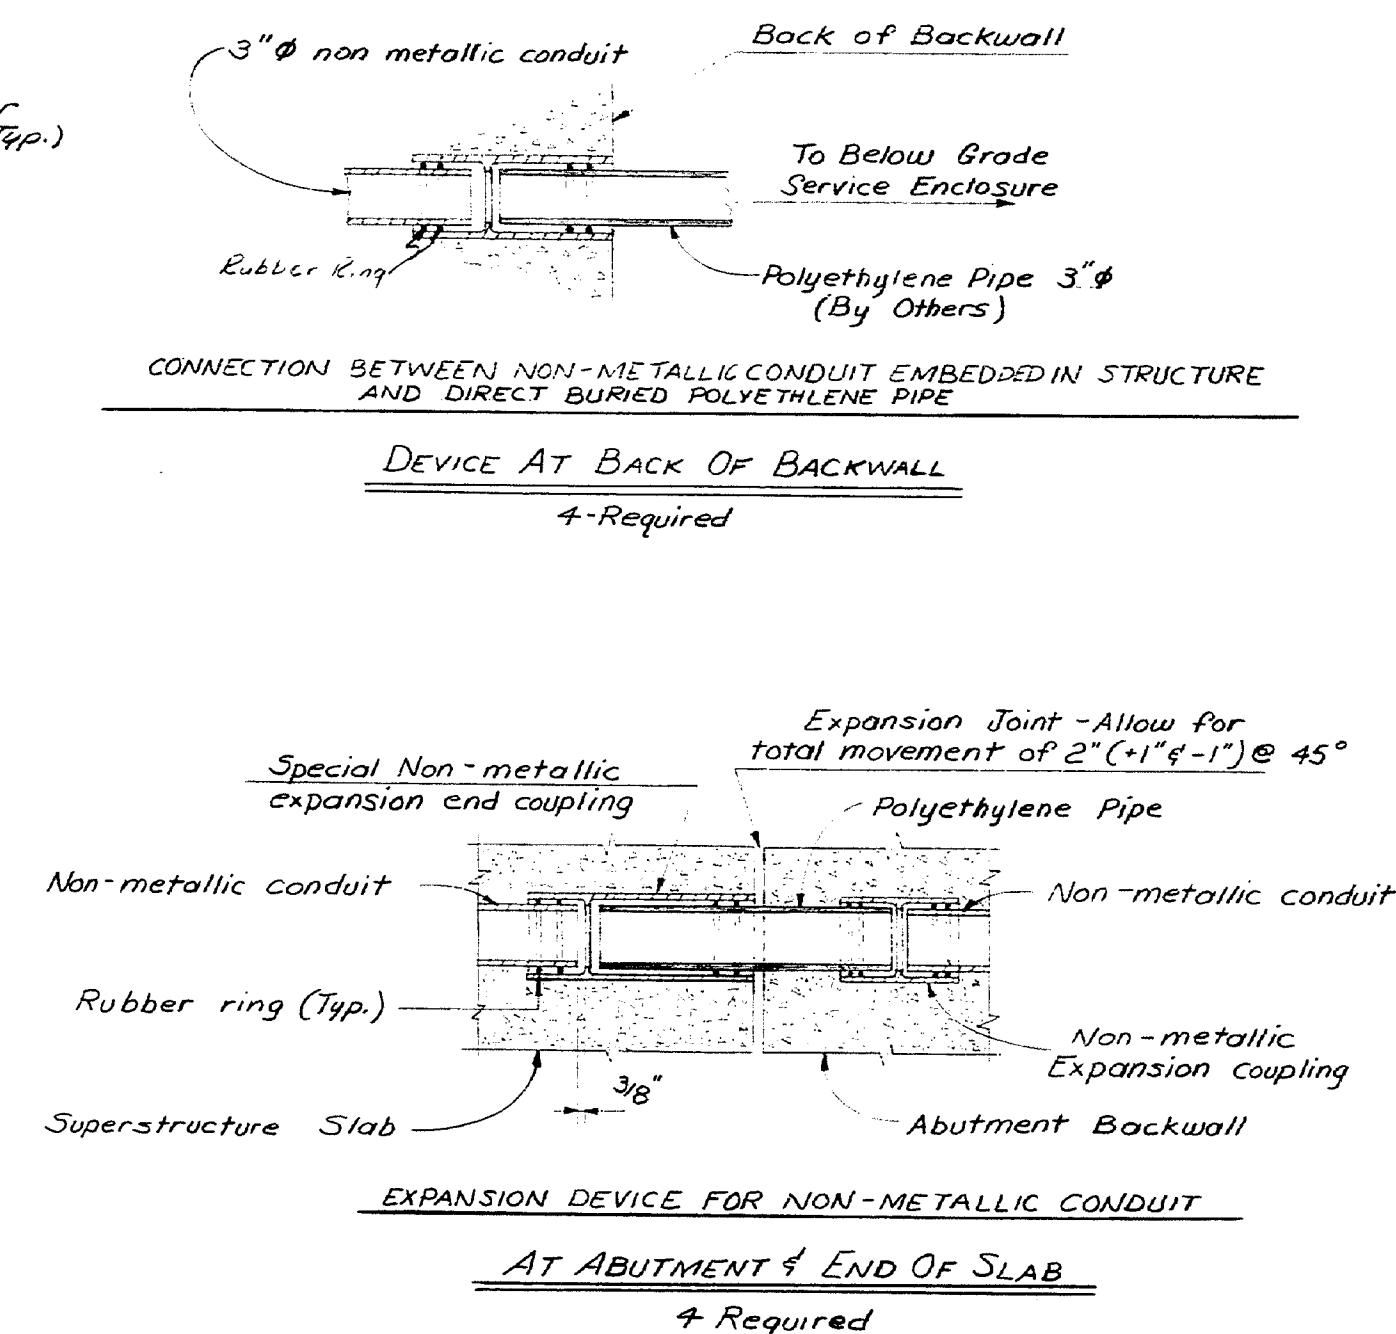 3"Φ non metallic conduit
Back of Backwall
Typ.)
To Below Grade
Service Enclosure
Rubber Ring
Polyethylene Pipe 3"Φ
(By Others)
CONNECTION BETWEEN NON-METALLIC CONDUIT EMBEDDED IN STRUCTURE
AND DIRECT BURIED POLYETHLENE PIPE
DEVICE AT BACK OF BACKWALL
4-Required
Expansion Joint - Allow for
total movement of 2" (+1" & -1") @ 45°
Special Non-metallic
expansion end coupling
Polyethylene Pipe
Non-metallic conduit
Non-metallic conduit
Rubber ring (Typ.)
Non-metallic
Expansion coupling
3/8"
Superstructure Slab
Abutment Backwall
EXPANSION DEVICE FOR NON-METALLIC CONDUIT
AT ABUTMENT & END OF SLAB
4 Required